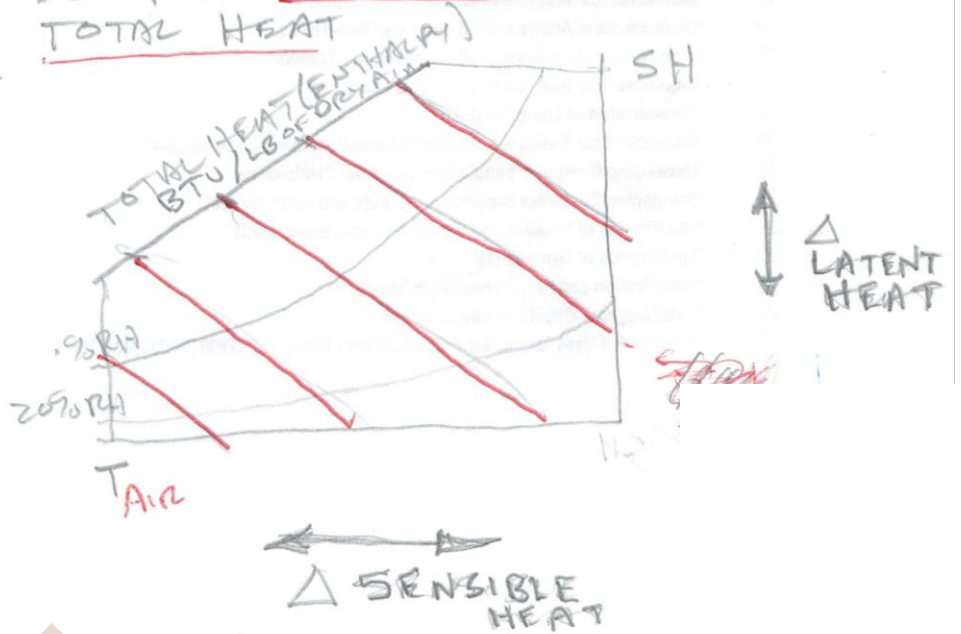 TOTAL HEAT
TOTAL HEAT (ENTHALPY)
BTU/LB OF DRY AIR
SH
Δ
LATENT
HEAT
%RH
20%RH
T AIR
Δ SENSIBLE
HEAT